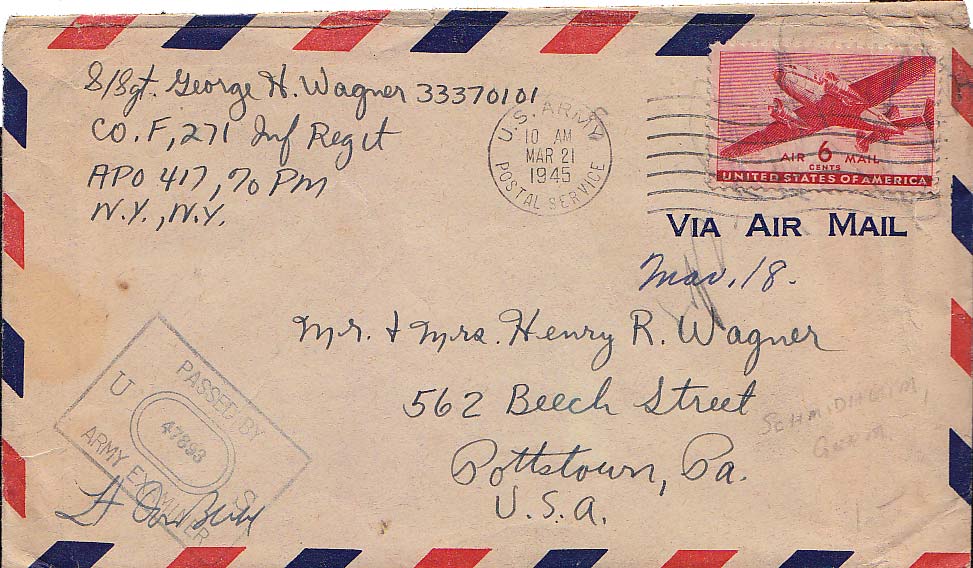 S/Sgt. George H. Wagner 33370101
CO. F, 271 Inf Regt
APO 417, % PM
N.Y., N.Y.
U.S. ARMY
10 AM
MAR 21
1945
POSTAL SERVICE
AIR 6 MAIL
CENTS
UNITED STATES OF AMERICA
VIA AIR MAIL
Mar. 18.
Mr. & Mrs. Henry R. Wagner
562 Beech Street
Pottstown, Pa.
U.S.A.
SCHMIDHEIM,
PASSED BY
U S
47893
ARMY EXAMINER
Lt